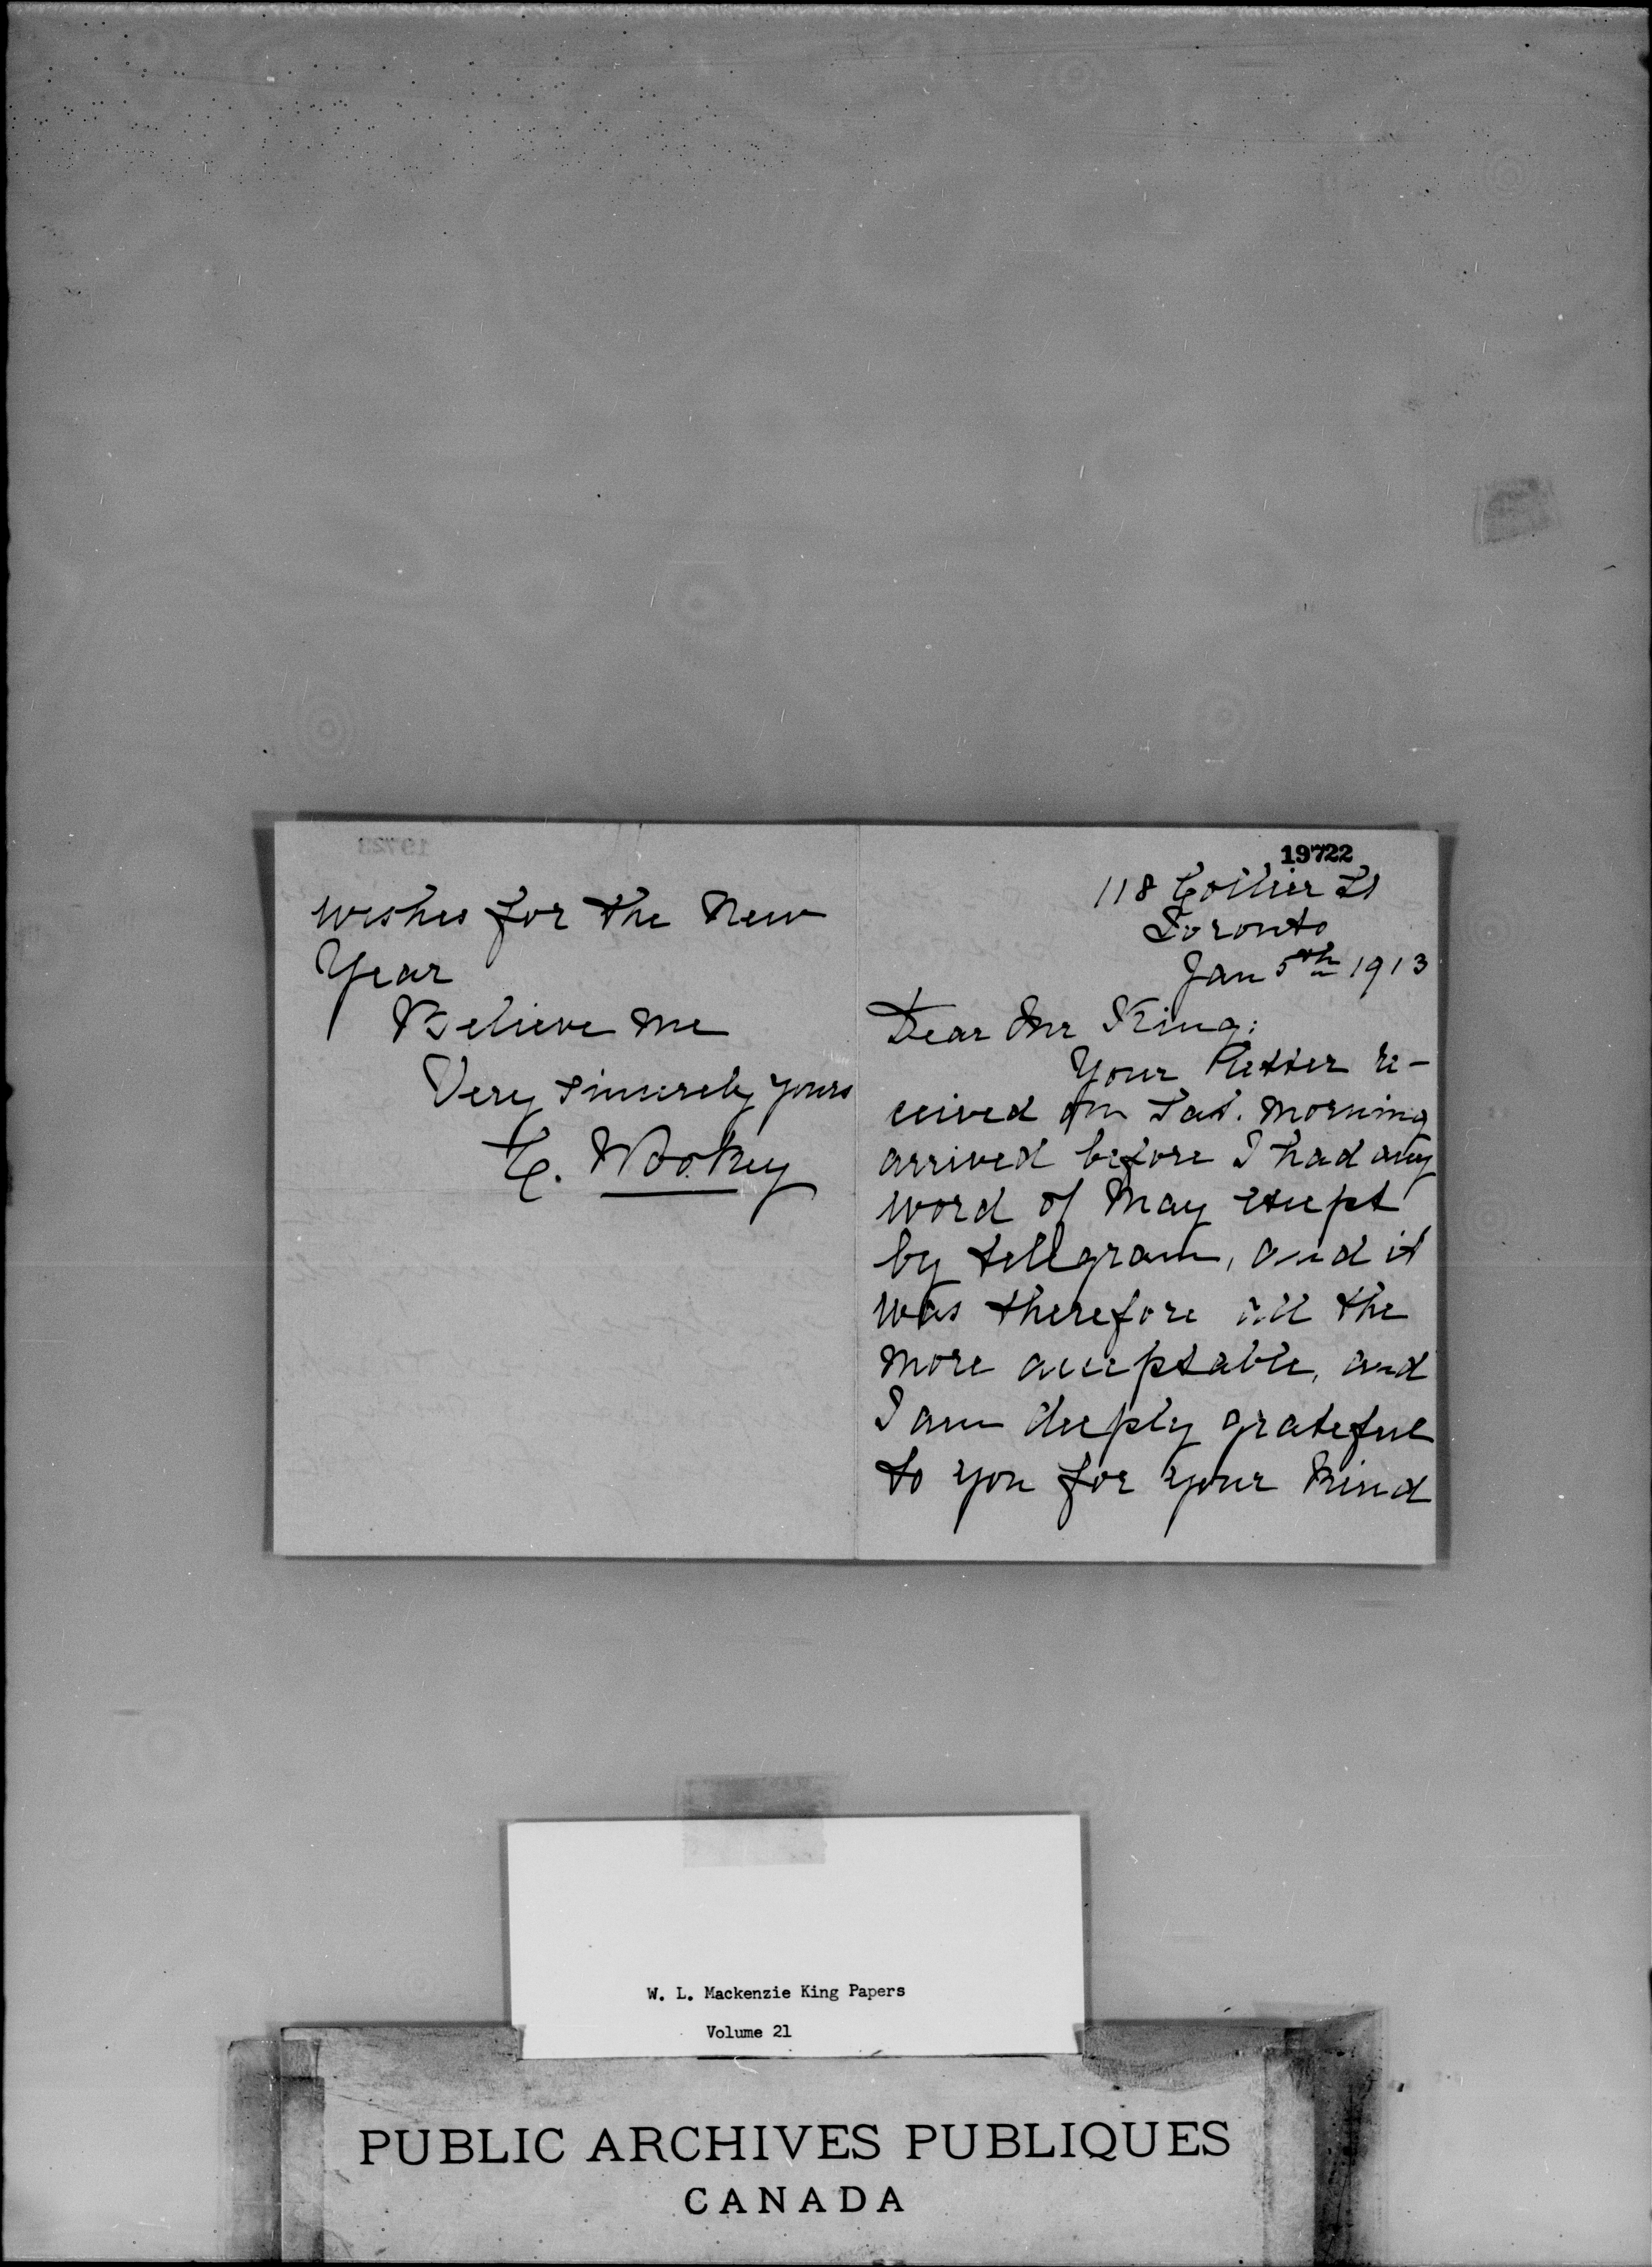 19722
118 Collier St
Toronto
Jan 5th 1913
Dear Mr King:
Your letter re-
ceived on Sat. morning
arrived before I had any
word of May except
by tellgram, and it
was therefore all the
more acceptable, and
I am deeply grateful
to you for your kind
wishes for the New
Year
Believe me
Very sincerely yours
Wookey
W. L. Mackenzie King Papers
Volume 21
PUBLIC ARCHIVES PUBLIQUES
CANADA